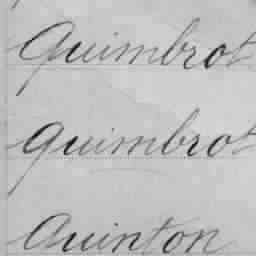 Quimbrot
Quimbrot
Quinton